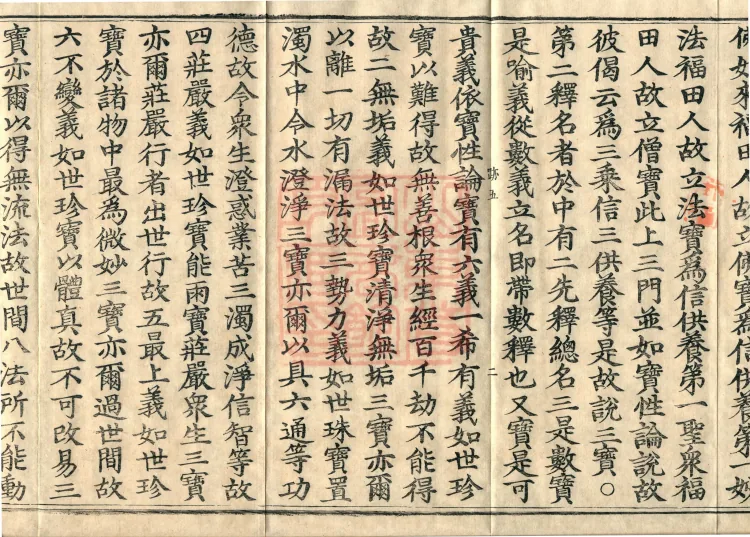 佛如來福田人故立佛寶為信供養第一
法福田人故立法寶為信供養第一聖衆福
田人故立僧寶此上三門並如寶性論說故
彼偈云為三乘信三供養等是故說三寶〇
第二釋名者於中有二先釋總名三是數寶
是喻義從數義立名即帶數釋也又寶是可
五
二
貴義依寶性論寶有六義一希有義如世珍
寶以難得故無善根衆生經百千劫不能得
故二無垢義如世珍寶清淨無垢三寶亦爾
以離一切有漏法故三勢力義如世珠寶置
濁水中令水澄淨三寶亦爾以具六通等功
德故令衆生澄惑業苦三濁成淨信智等故
四莊嚴義如世珍寶能雨寶莊嚴衆生三寶
亦爾莊嚴行者出世行故五最上義如世珍
寶於諸物中最為微妙三寶亦爾過世間故
六不變義如世珍寶以體真故不可改易三
寶亦爾以得無流法故世間八法所不能動